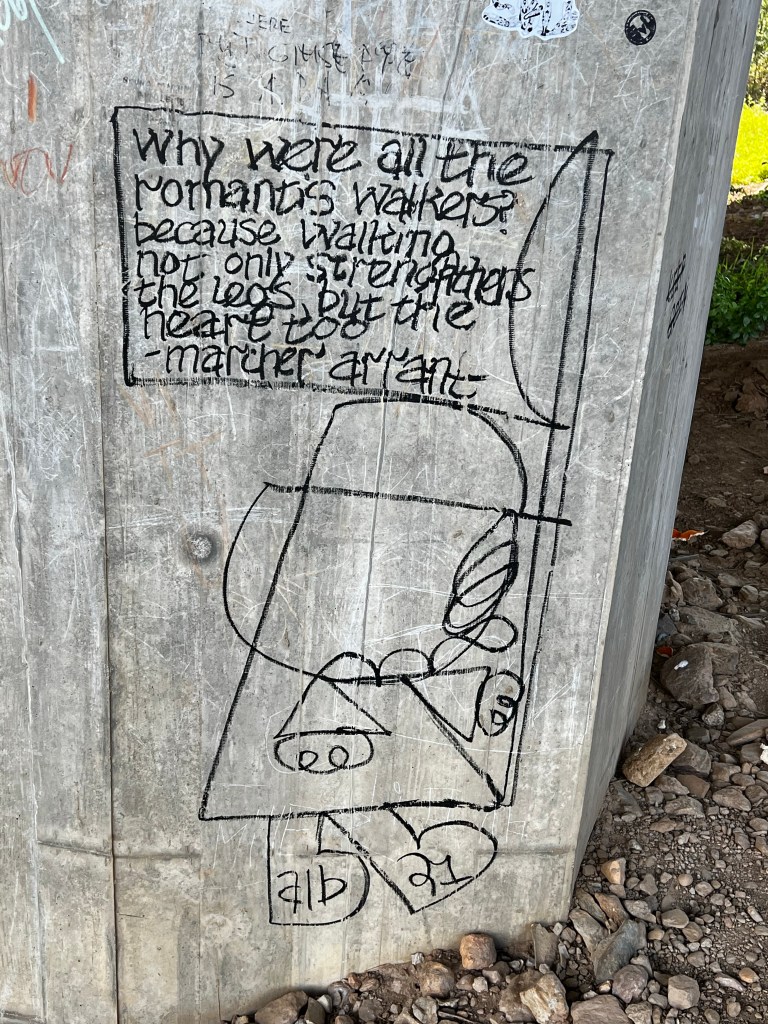 Why were all the
romantis walkers?
because walking
not only strengthens
the legs, but the
heart too
-marcher arrant-
21